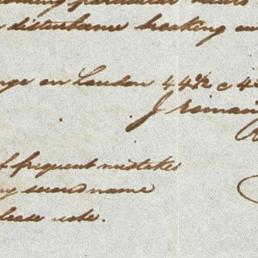 disturbance breaking
on London 44½ @ 4
I remain
frequent mistakes
my second name
please note.